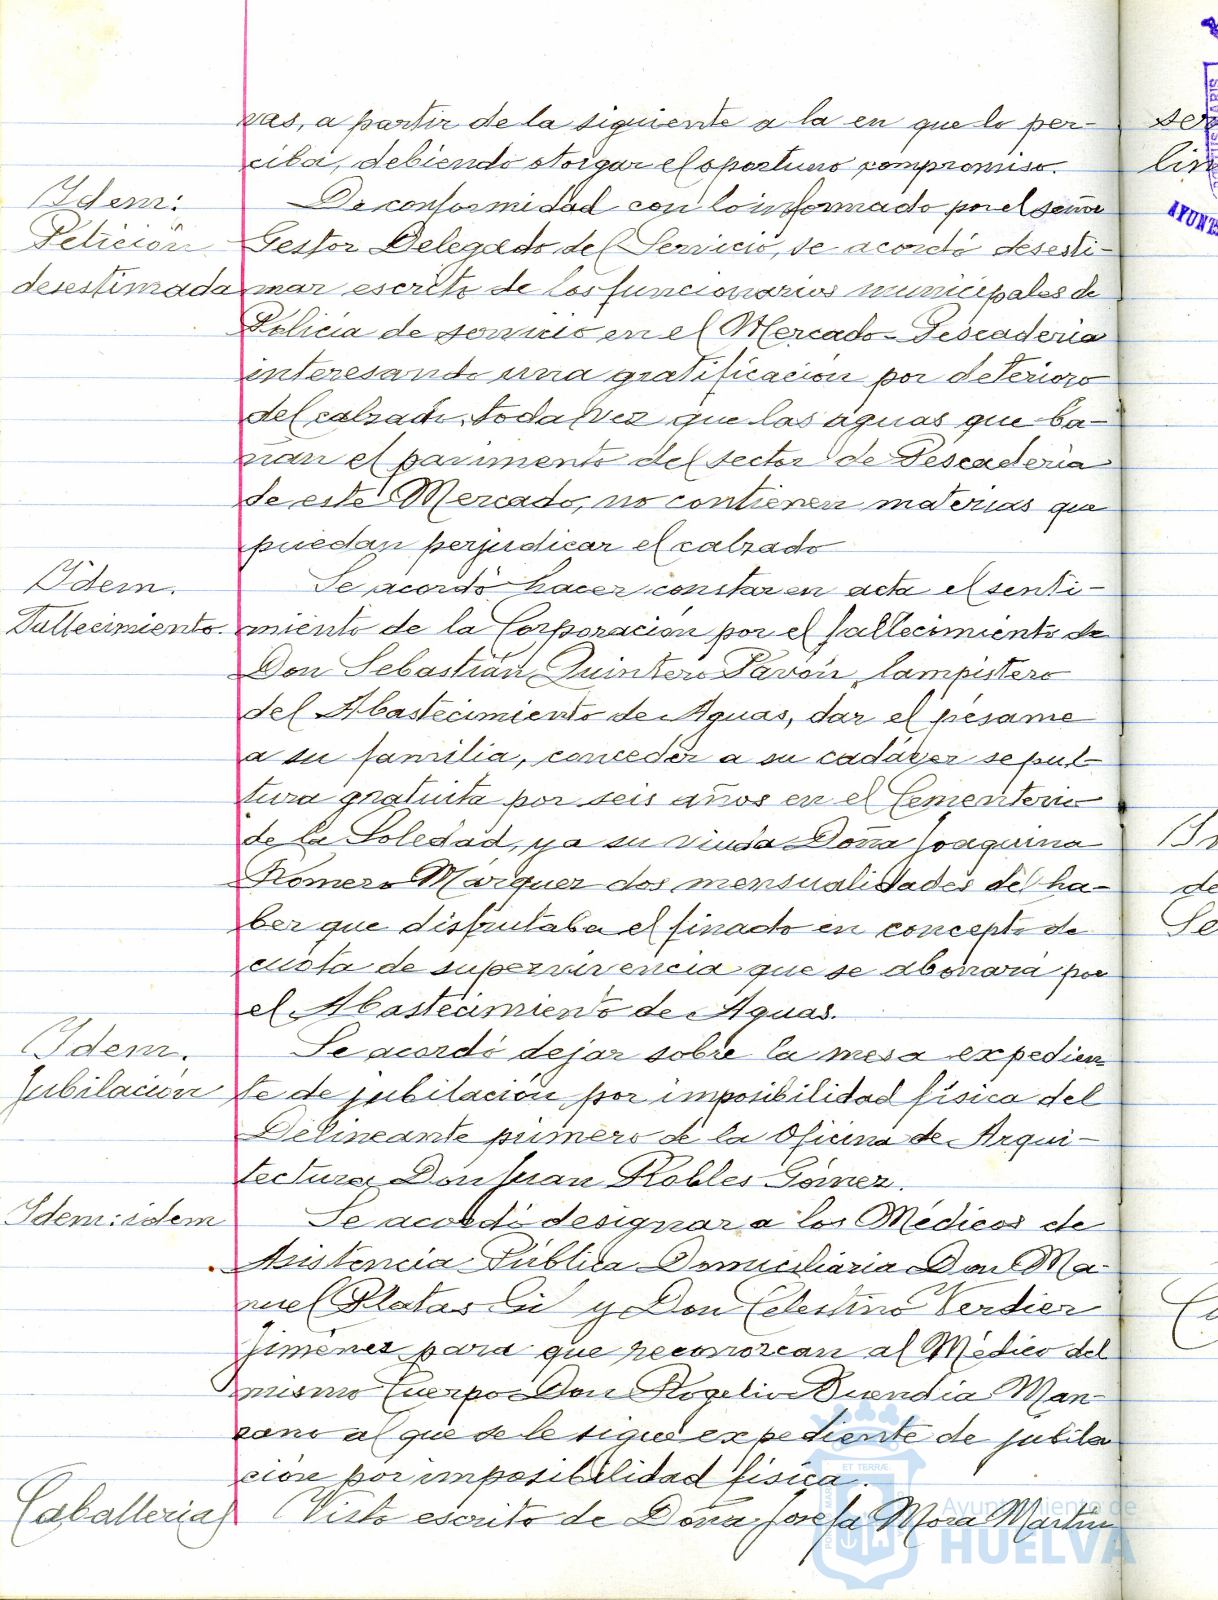 vas, a partir de la siguiente a la en que lo per-
ciba, debiendo otorgar el oportuno compromiso.
Idem:
Petición
desestimada
De conformidad con lo informado por el señor
Gestor Delegado del Servicio, se acordó desesti-
mar escrito de los funcionarios municipales de
Policia de servicio en el Mercado-Pescaderia
interesando una gratificación por deterioro
del calzado, toda vez que las aguas que ba-
ñan el pavimento del sector de Pescaderia
de este Mercado, no contienen materias que
puedan perjudicar el calzado
Idem.
Fallecimiento.
Se acordó hacer constar en acta el senti-
miento de la Corporación por el fallecimiento de
Don Sebastián Quintero Pavón, lampistero
del Abastecimiento de Aguas, dar el pésame
a su familia, conceder a su cadáver sepul-
tura gratuita por seis años en el Cementerio
de la Soledad, y a su viuda Doña Joaquina
Romero Márquez dos mensualidades del ha-
ber que disfrutaba el finado en concepto de
cuota de supervivencia que se abonará por
el Abastecimiento de Aguas.
Idem.
Jubilación
Se acordó dejar sobre la mesa expedien
te de jubilación por imposibilidad física del
Delineante primero de la Oficina de Arqui-
tectura Don Juan Robles Gómez.
Idem: idem
Se acordó designar a los Médicos de
Asistencia Pública Domiciliaria Don Ma-
nuel Platas Gil y Don Celestino Verdier
Jiménez para que reconozcan al Médico del
mismo Cuerpo Don Rogelio Buendia Man-
zano al que se le sigue expediente de jubila
ción por imposibilidad física.
Caballerias
Visto escrito de Doña Josefa Mora Martin
Ayuntamiento de
HUELVA